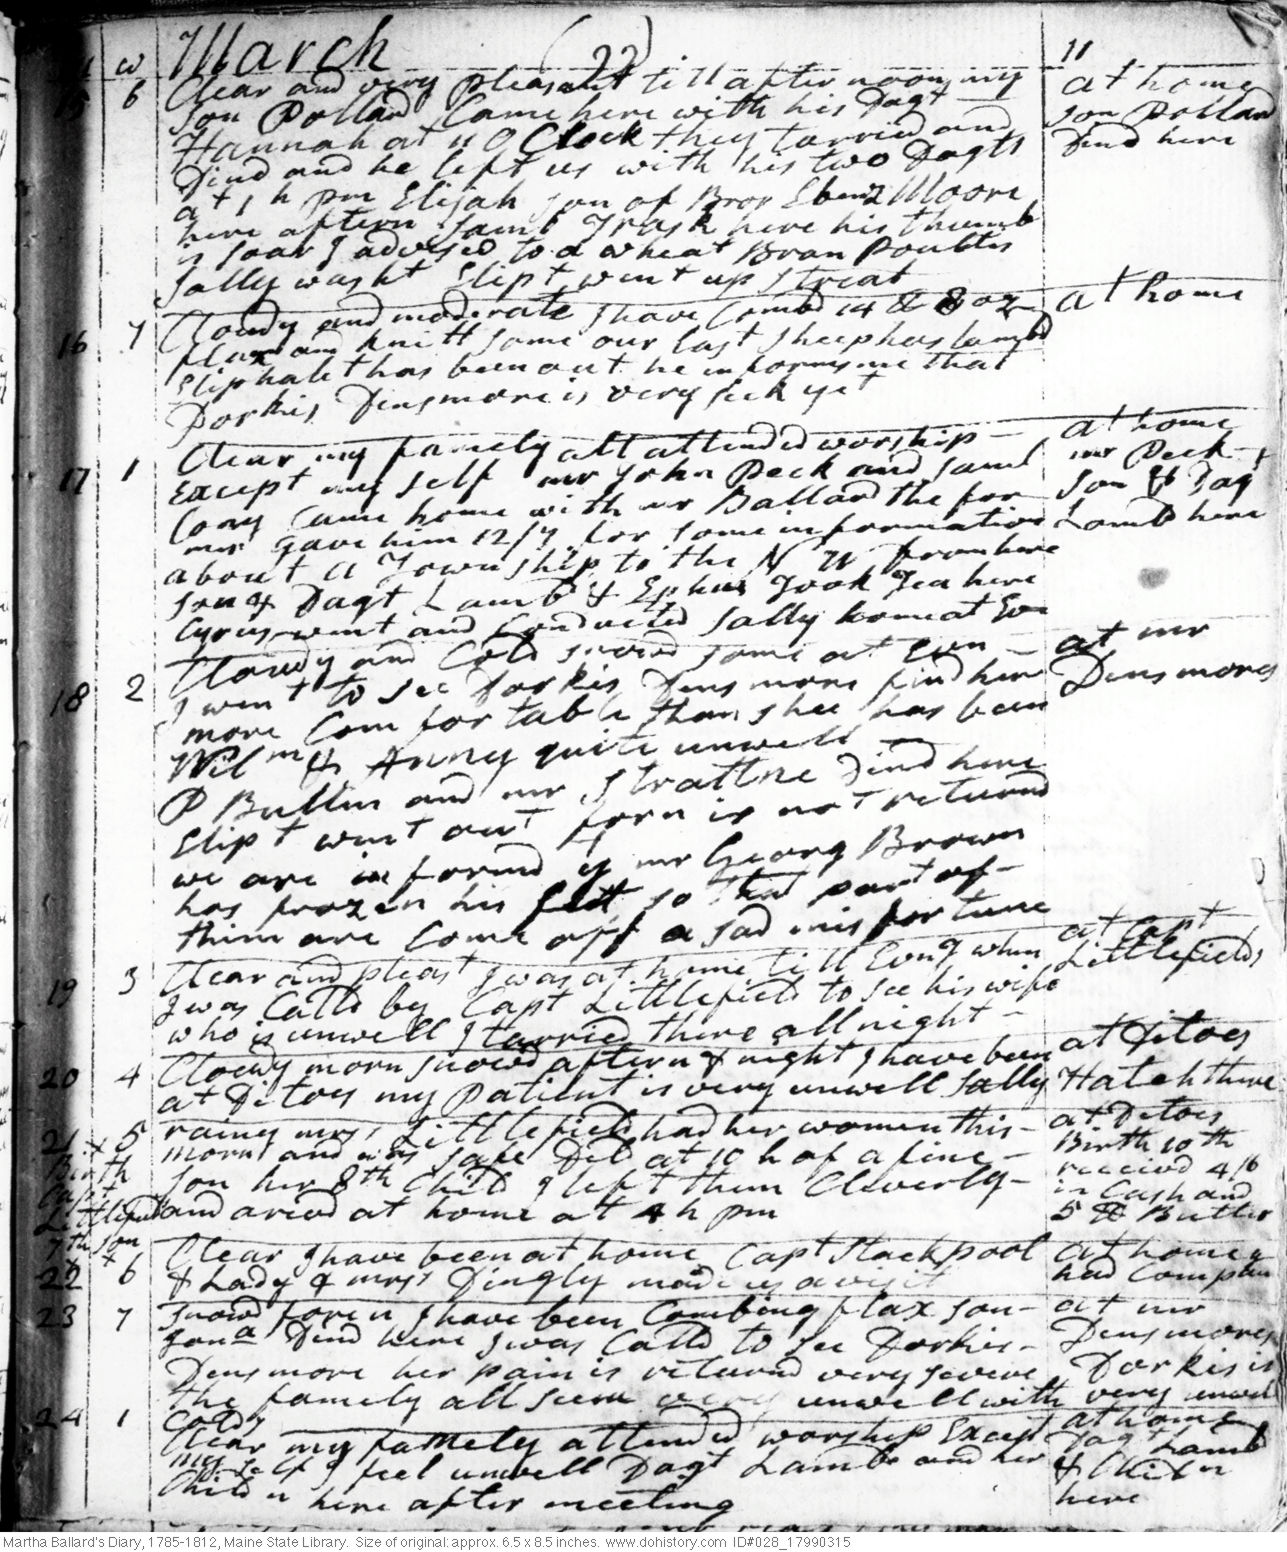 March (22) 11
w
15 6 Clear and very pleasant till afternoon my at home
son Pollard Came here with his Dagt son Pollard
Hannah at 11 O Clock they tarried and Dind here
Dind and he left us with his two Dagts
at 1 h pm Elijah son of Bror Ebenz Moore
here aftern Saml Trask here his thumb
is soar I advised to a wheat Bran Poultis
Sally washt Elipt went up streat
16 7 Clowdy and moderate I have Combd 14 lb 8 oz at home
flax and knitt some our last sheep has lambd
Eliphalet has been out he informs me that
Dorkis Densmore is very sick yet
17 1 Clear my famely all attended worship at home
Except my self mr John Peck and Saml mr Peck
Cony Came home with mr Ballard the for son & Dagt
mer gave him 12/ for some information Lamb here
about a Township to the N W from here
son & Dagt Lamb & Ephm Took Tea here
Cyrus went and Conducted Sally home at Evn
18 2 Clowdy and Cold snowd some at Even at mr
I went to see Dorkis Densmore find her Densmores
more Comfortable than shee has been
Wilm & Anny quite unwell
P Bullin and mr Strattne Dind here
Elipt went out forn is not returnd
we are informd yt mr Georg Brown
has frozen his feet so that part of
them are Come off a sad misfortune
19 3 Clear and pleast I was at home till Evng when at Capt
I was Calld by Capt Littlefield to see his wife Littlefields
who is unwell I tarried there all night
20 4 Clowdy morn snowd aftern & night I have been at Ditoes
at Ditoes my patient is very unwell Sally Hatch there
21 + 5 rainy mrs Littlefield had her women this at Ditoes
Birth morn and was safe Deld at 10 h of a fine Birth 10th
Capt son her 8th Child I left them Cleverly received 4/6
Littlefield and arivd at home at 4 h pm in Cash and
7th son 5 lb Butter
22 6 Clear I have been at home Capt Stackpool at home
& Lady & mrs Dingly made us a visit had Compan
23 7 snowd foren I have been Combing flax son at mr
Jona Dind here I was Calld to see Dorkis Densmores
Densmore her pain is returnd very severe Dorkis is
the famely all seem very unwell with very unwell
Colds
24 1 Clear my famely attended worship Except at home
my self I feel unwell Dagt Lamb and her Dagt Lamb
Childn here after meeting & Childn
here
Martha Ballard's Diary, 1785-1812, Maine State Library. Size of original:approx. 6.5 x 8.5 inches. www.dohistory.com ID#028_17990315